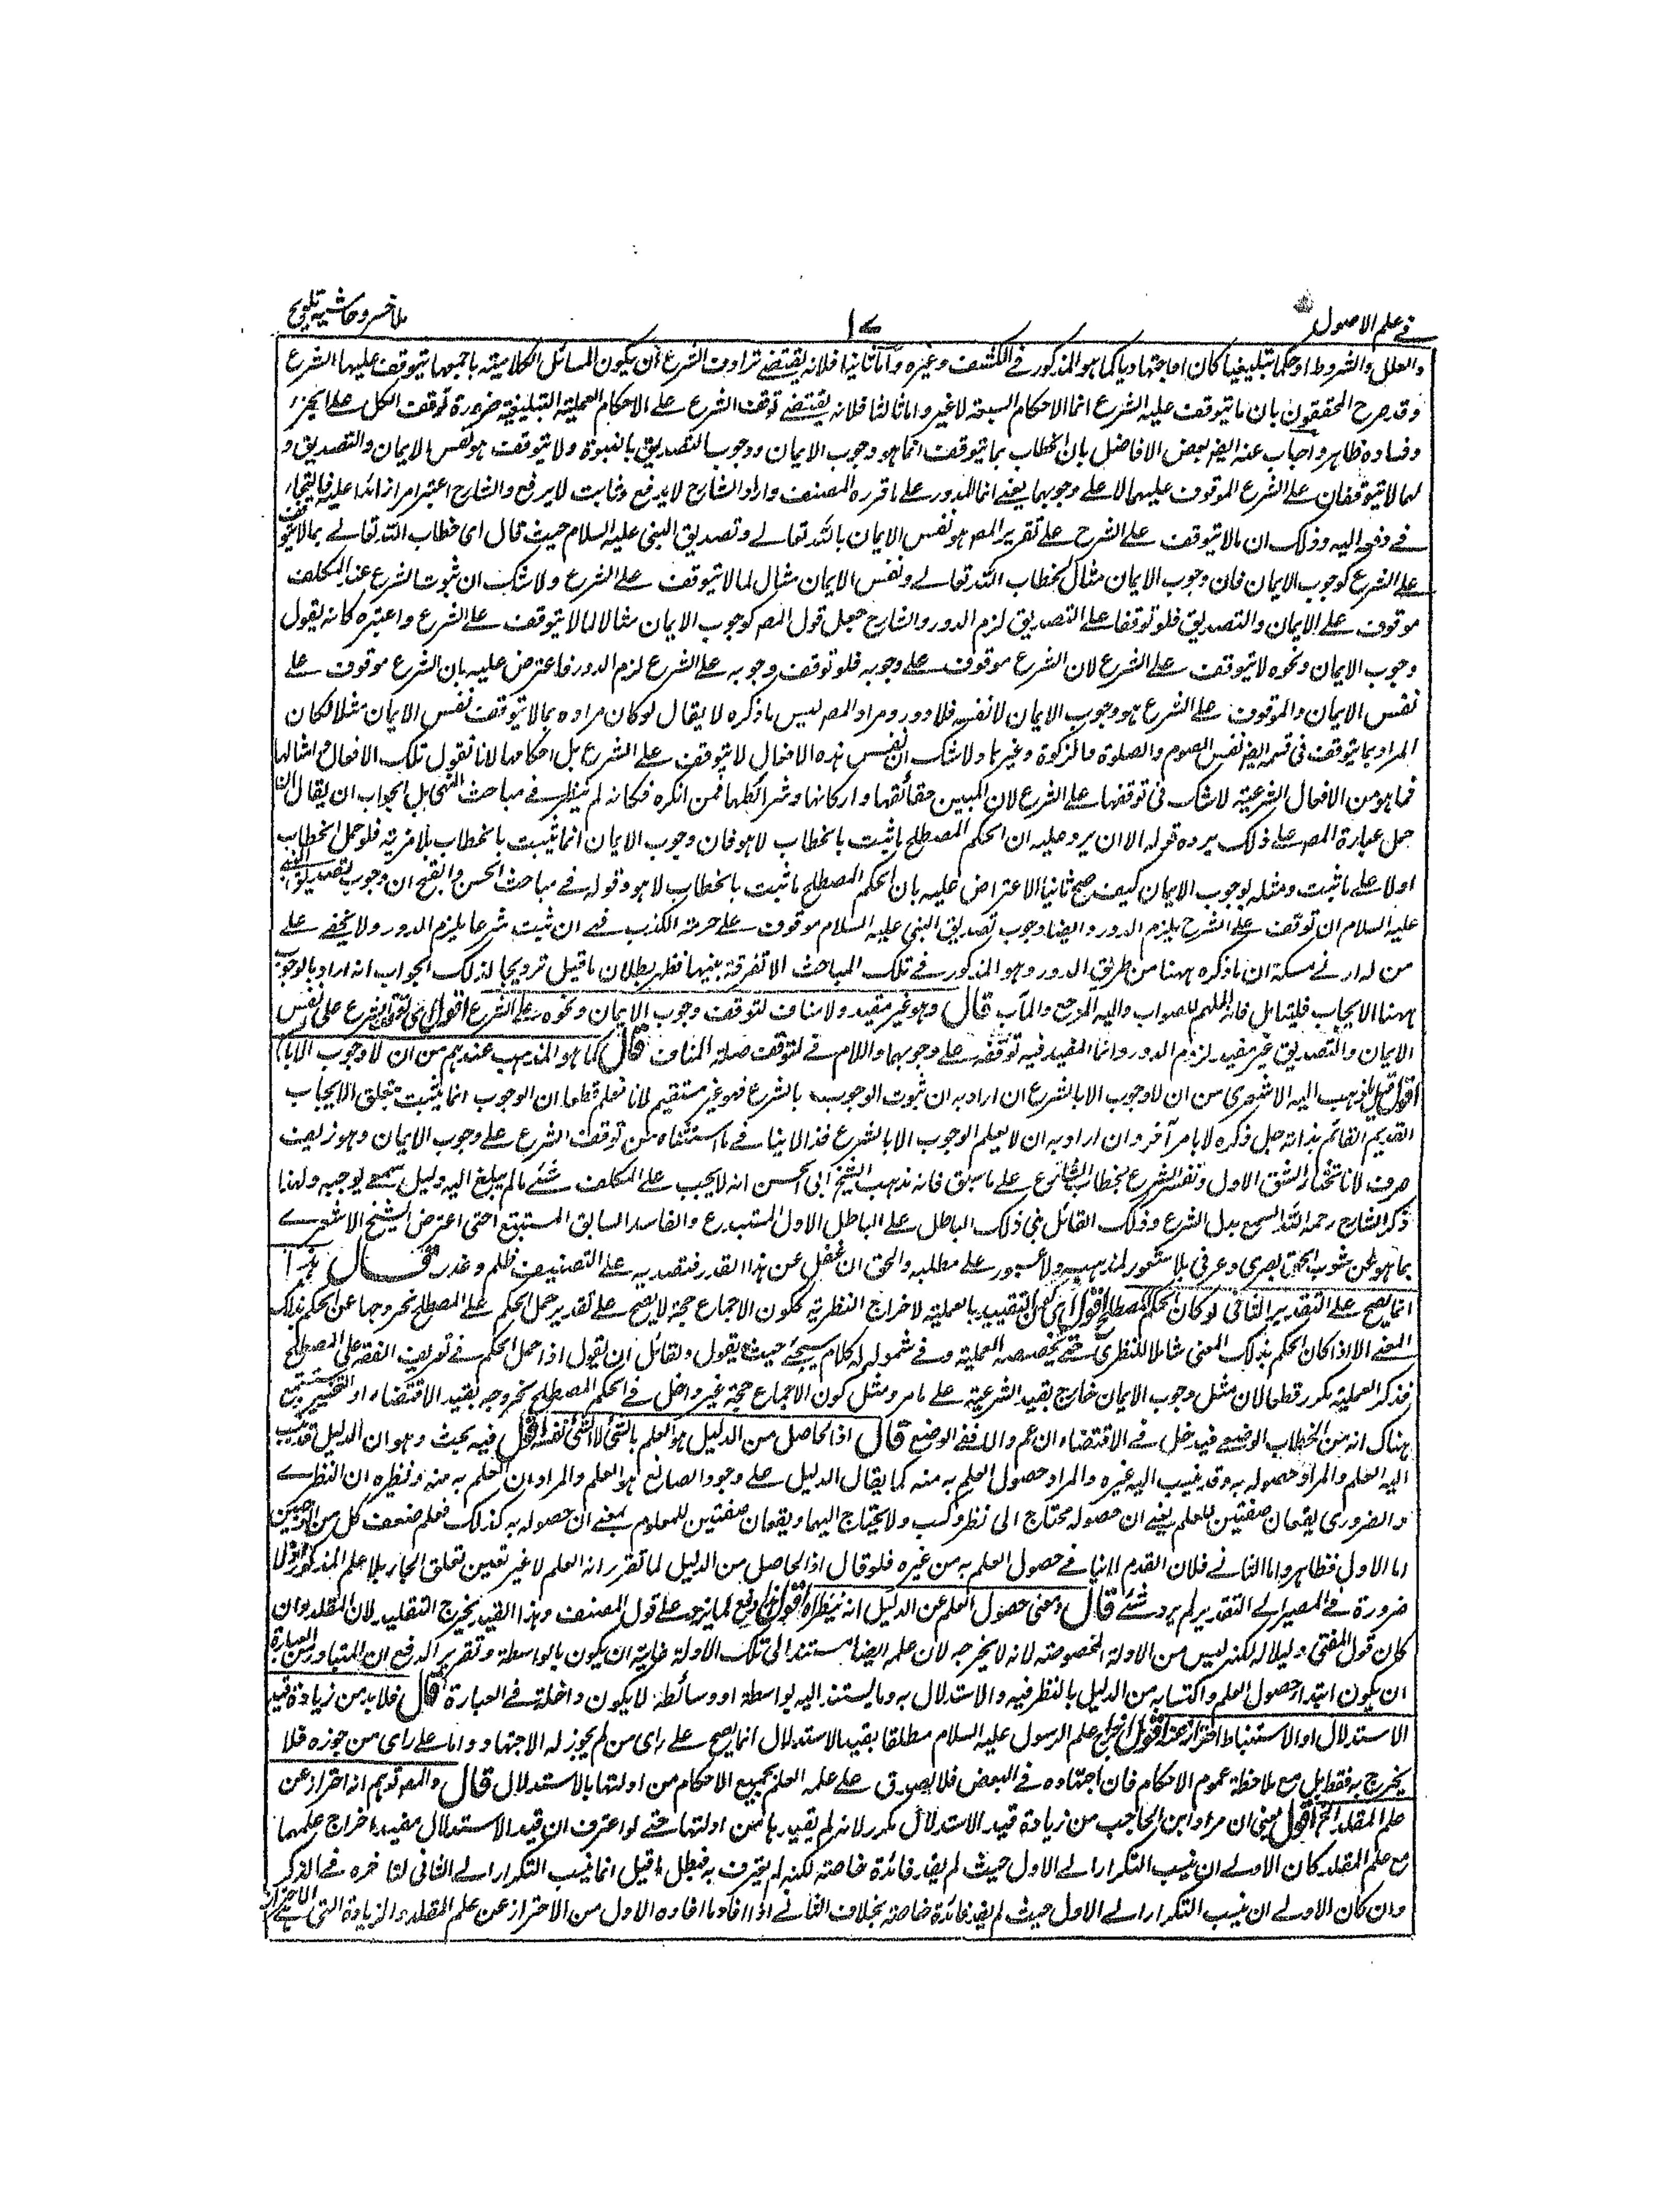 في علم الاصول
١٧
ملا خسرو حاشيه تلويح
والعلل والشروط او حكما تبليغيا كان اما اجتهاديا كما هو المذكور في الكشف وغيره واما ثانيا فلانه يقتضي ترادف الشرع ان يكون المسائل الكلامية باجمعها يتوقف عليها الشرع
وقد صرح المحققون بان ما يتوقف عليه الشرع انما الاحكام السبعة لا غير واما ثالثا فلانه يقتضي توقف الشرع على الاحكام العملية التبليغية ضرورة توقف الكل على الجزء
وفساده ظاهر واجاب عنه ايضا بعض الافاضل بان الخطاب بما يتوقف انما هو وجوب الايمان ووجوب التصديق بالنبوة ولا يتوقف هو نفس الايمان والتصديق و
لهما لا يتوقفان على الشرع الموقوف عليهما لا على وجوبهما يعني انما الدور على ما قرره المصنف واراد الشارح لا يدفع وثابت لا يرفع والشارح اعتبر امرا زائدا عليه فالتجاء
في دفعه اليه وذلك ان مالا يتوقف على الشرع على تقرير المص هو نفس الايمان بالله تعالى وتصديق النبي عليه السلام حيث قال اى خطاب الله تعالى بمالا يتوقف
على الشرع كوجوب الايمان فان وجوب الايمان مثال لخطاب الله تعالى ونفس الايمان مثال لما لا يتوقف على الشرع ولا شك ان ثبوت الشرع عند المكلف
موقوف على الايمان والتصديق فلو توقفا على التصديق لزم الدور والشارح جعل قول المص كوجوب الايمان مثالا لما لا يتوقف على الشرع واعتبره كانه يقول
وجوب الايمان ونحوه لا يتوقف على الشرع لان الشرع موقوف على وجوبه فلو توقف وجوبه على الشرع لزم الدور فاعترض عليه بان الشرع موقوف على
نفس الايمان والموقوف على الشرع هو وجوب الايمان لا نفسه فلا دور ومراد المص ليس ما ذكره لا يقال لو كان مراده بمالا يتوقف نفس الايمان مثلا لكان
المراد بما يتوقف في قسمه ايضا نفس الصوم والصلوة والزكوة وغيرها ولا شك ان نفس هذه الافعال لا يتوقف على الشرع بل احكامها لانا نقول تلك الافعال وامثالها
فما هو من الافعال الشرعية لا شك في توقفها على الشرع لان المبين حقائقها واركانها وشرائطها فمن انكره فكانه لم ينظر في مباحث النهى بل الجواب ان يقال ان
حمل عبارة المص على ذلك يرده قوله الا ان يرد عليه ان الحكم المصطلح ما ثبت بالخطاب لا هو فان وجوب الايمان انما يثبت بالخطاب بلا مرية فلو حمل الخطاب
اولا على ما ثبت ومثله بوجوب الايمان كيف صح ثانيا الاعتراض عليه بان الحكم المصطلح ما ثبت بالخطاب لا هو وقوله في مباحث الحسن والقبح ان وجوب تصديق النبي
عليه السلام ان توقف على الشرع يلزم الدور وايضا وجوب تصديق النبي عليه السلام موقوف على حرمة الكذب فهى ان ثبت شرعا يلزم الدور ولا يخفى على
من له ادنى مسكة ان ما ذكره ههنا من طريق الدور وهو المذكور في تلك المباحث الا تفرقة بينهما فظهر بطلان ما قيل ترويجا لذلك الجواب انه اراد بالوجوب
ههنا الايجاب فليتامل فانه الملهم للصواب واليه المرجع والمآب قال وهو غير مقيد ولا مناف لتوقف وجوب الايمان ونحوه على الشرع اقول اى توقف الشرع على نفس
الايمان والتصديق غير مفيد لزوم الدور وانما المفيد فيه توقفه على وجوبهما واللام في لتوقف صلة المناف قال كما هو المذهب عندهم من ان لا وجوب الا با
اقول قيل ما ذهب اليه الاشعرى من ان لا وجوب الا بالشرع ان اراد به ان ثبوت الوجوب بالشرع فهو غير مستقيم لانا نعلم قطعا ان الوجوب انما يثبت بتعلق الايجاب
القديم القائم بذاته جل ذكره لا بامر آخر وان اراد به ان لا يعلم الوجوب الا بالشرع فذا لا ينافي ما استثناه من توقف الشرع على وجوب الايمان وهو زيف
صرف لانا نختار الشق الاول ونفسر الشرع بخطاب الشارع على ما سبق فانه مذهب الشيخ ابى الحسن انه لا يجب على المكلف شئ مالم يبلغ اليه دليل سمعى يوجبه ولهذا
ذكر الشارح رحمه الله السمع بدل الشرع وذلك القائل بنى ذلك الباطل على الباطل الاول المستبدع والفاسد السابق المستبتع حتى اعترض الشيخ الاشعري
بما هو عن شوب الحق بصرى وعرفى بلا شعور لمذهبه ولا عبور على مطلبه والحق ان غفل عن هذا القدر فتصديه على التصنيف ظلم وغدر قال هذا
انما يصح على التقدير الثانى لو كان الحكم المصطلح اقول اى كون التقييد بالعملية لاخراج النظرية ككون الاجماع حجة لا يصح على تقدير حمل الحكم على المصطلح لخروجها عن الحكم بذلك
المعنى الا اذا كان الحكم بذلك المعنى شاملا للنظرى حتى تخصصه العملية وفي شموله له كلام سيجئ حيث يقول ولقائل ان يقول اذا حمل الحكم في تعريف الفقه على المصطلح
فذكر العملية مكرر قطعا لان مثل وجوب الايمان خارج بقيد الشرعية على ما مر ومثل كون الاجماع حجة غير داخل في الحكم المصطلح لخروجه بقيد الاقتضاء او التخيير
هناك انه من الخطاب الوضعى فيدخل في الاقتضاء ان عم والا ففى الوضع قال اذ الحاصل من الدليل هو العلم بالشئ لا الشئ نفسه اقول فيه بحث وهو ان الدليل قد ينسب
اليه العلم والمراد حصوله به وقد ينسب اليه غيره والمراد حصول العلم به منه كما يقال الدليل على وجود الصانع هو العلم والمراد ان العلم به منه ونظيره ان النظرى
والضرورى يقعان صفتين للعلم يعنى ان حصوله محتاج الى نظر وكسب ولا يحتاج اليهما ويقعان صفتين للمعلوم بمعنى ان حصوله به كذلك فعلم ضعف كل من الوجهين
اما الاول فظاهر واما الثانى فلان القدم انما في حصول العلم به من غيره فلو قال اذ الحاصل من الدليل لما تقرر انه العلم لا غير تعين تعلق الجار بالعلم المذكور اذ لا
ضرورة في المصير الى التقدير لم يرد شئ قال ومعنى حصول العلم عن الدليل انه ينظر اه اقول هذا دفع لما يرد على قول المصنف وهذا القيد يخرج التقليد لان المقلد وان
كان قول المفتى دليلا له لكنه ليس من الادلة المخصوصة لانه لا يخرجه لان علمه ايضا مستند الى تلك الادلة غايته ان يكون بالواسطة وتقرير الدفع ان المتبادر من العبارة
ان يكون ابتداء حصول العلم واكتسابه من الدليل بالنظر فيه والاستدلال به وما يستند اليه بواسطة او وسائط لا يكون داخلة في العبارة قال فلا بد من زيادة قيد
الاستدلال او الاستنباط احترازا عنه اقول اخراج علم الرسول عليه السلام مطلقا بقيد الاستدلال انما يصح على راى من لم يجوز له الاجتهاد واما على راى من جوزه فلا
يخرج به فقط بل مع ملاحظة عموم الاحكام فان اجتهاده في البعض فلا يصدق على علمه العلم بجميع الاحكام من ادلتها بالاستدلال قال والمص توهم انه احتراز عن
علم المقلد الخ اقول يعنى ان مراد ابن الحاجب من زيادة قيد الاستدلال مكرر لانه لم يقيد بها من ادلتها حتى لو اعترف ان قيد الاستدلال مفيد اخراج علمهما
مع علم المقلد كان الاولى ان ينسب التكرار الى الاول حيث لم يفد فائدة خاصة لكنه لم يعترف به فبطل ما قيل انما نسب التكرار الى الثانى لتاخره في الذكر
وان كان الاولى ان ينسب التكرار الى الاول حيث لم يفد فائدة خاصة بخلاف الثانى اذ افاد ما افاده الاول من الاحتراز عن علم المقلد والزيادة التى هى الاحتراز